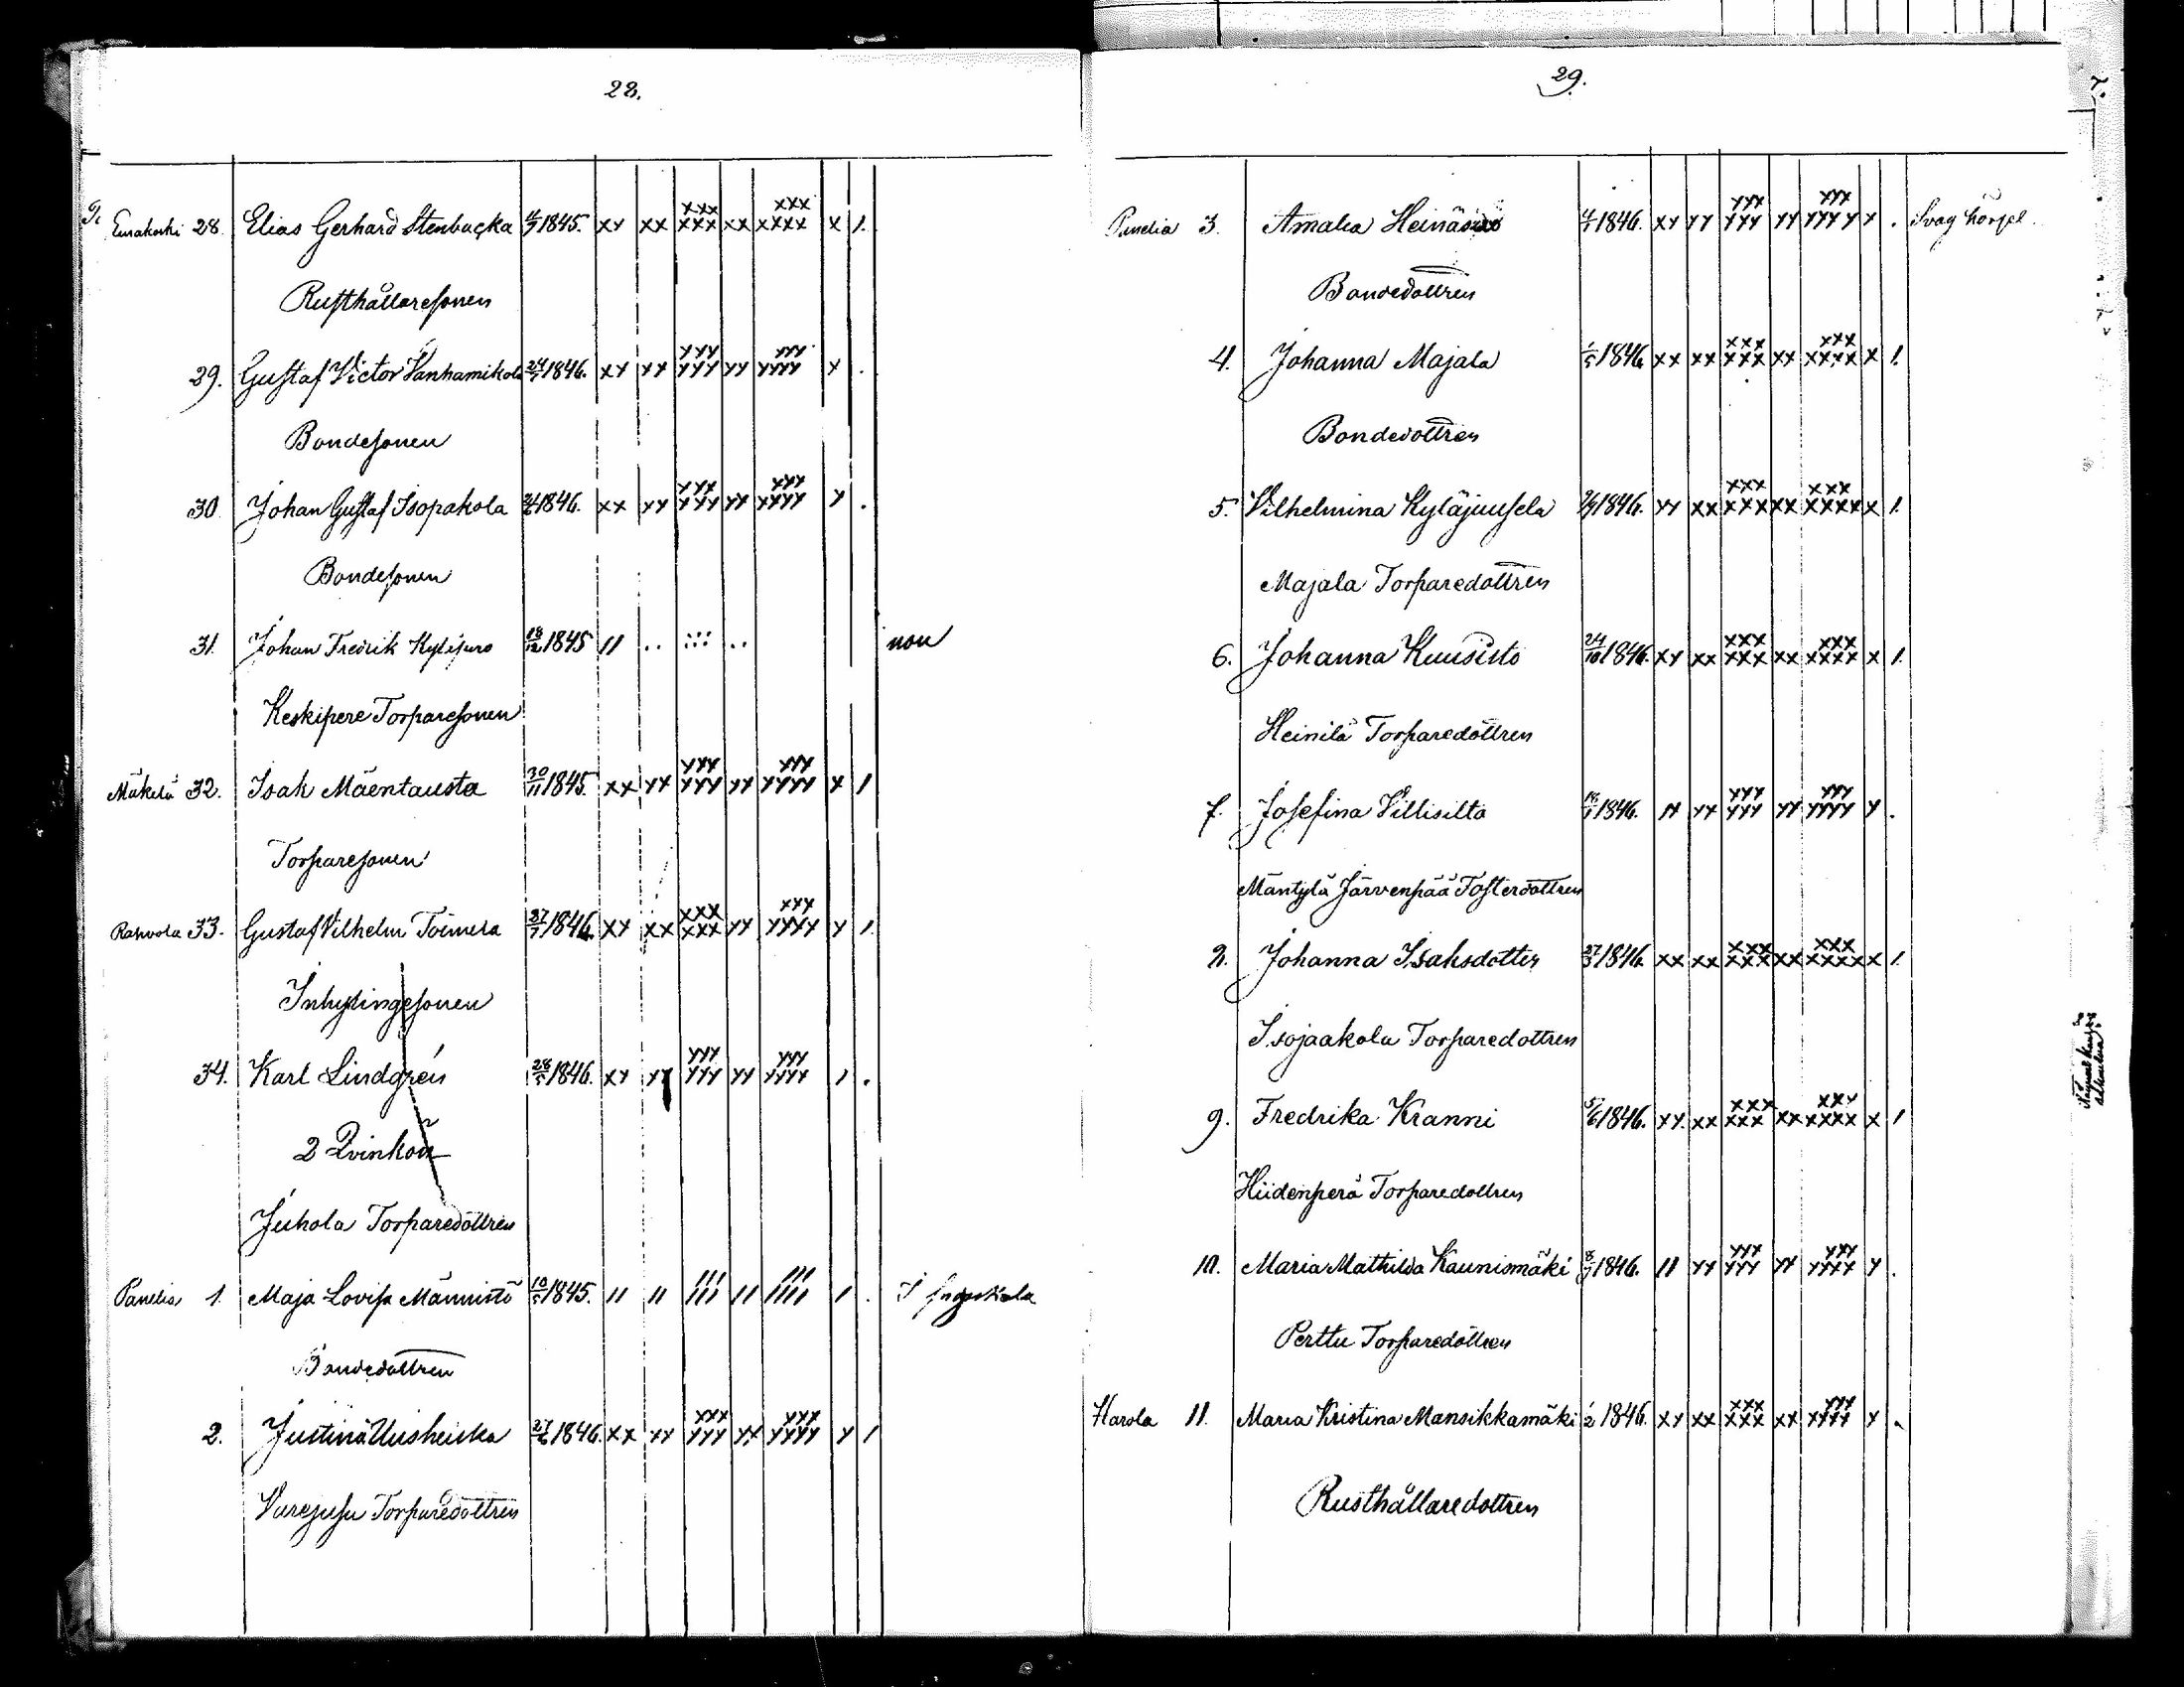 28.
Eurakoski 28. Elias Gerhard Stenbacka 1845. xx xx xxx xxx xx xxx xxxx x 1.
Rusthållaresonen
29. Gustaf Victor Vanhamikola 1846. xx xx xxx xxx xx xxx xxxx x .
Bondesonen
30. Johan Gustaf Isopakola 1846. xx xx xxx xxx xx xxx xxxx x .
Bondesonen
31. Johan Fredrik 18/12 1845 11 .. ::: .. non
Keskipere Torparesonen
Mäkelä 32. Isak Mäentausta 30/11 1845. xx xx xxx xxx xx xxx xxxx x 1
Torparesonen
33. Gustaf Vilhelm 27/7 1846 xx xx xxx xxx xx xxx xxxx x 1.
Inhysingesonen
34. Karl Lindgrén 28/5 1846. xx xx xxx xxx xx xxx xxxx 1 .
2 Qvinkön
Juhola Torparedottren
Panelia 1. Maja Lovisa Männistö 10/5 1845. 11 11 111 111 11 111 1111 1 .
Bondedottren
2. Justina Uusheiska 27/6 1846. xx xx xxx xxx xx xxx xxxx x 1
Torparedottren
29.
Panelia 3. Amalia 1846. xx xx xxx xxx xx xxx xxxx x . Svag hörsel.
Bondedottren
4. Johanna Majala 1/5 1846 xx xx xxx xxx xx xxx xxxx x 1.
Bondedottren
5. Vilhelmina Kyläjuusela 1846. xx xx xxx xxx xx xxx xxxx x 1.
Majala Torparedottren
6. Johanna Kuusisto 24/10 1846. xx xx xxx xxx xx xxx xxxx x 1.
Heinilä Torparedottren
7. Josefina Villisilta 1846. 11 xx xxx xxx xx xxx xxxx x .
Mäntylä Järvenpää Fosterdottren
8. Johanna Isaksdotter 27/3 1846. xx xx xxx xxx xx xxx xxxx x 1.
Isojaakola Torparedottren
9. Fredrika Kranni 5/6 1846. xx xx xxx xxx xx xxx xxxx x 1
Hiidenperä Torparedottren
10. Maria Mathilda Kaunismäki 8/7 1846. 11 xx xxx xxx xx xxx xxxx x .
Perttu Torparedottren
Harola 11. Maria Kristina Mansikkamäki 1/2 1846. xx xx xxx xxx xx xxx xxxx x .
Rusthållaredottren